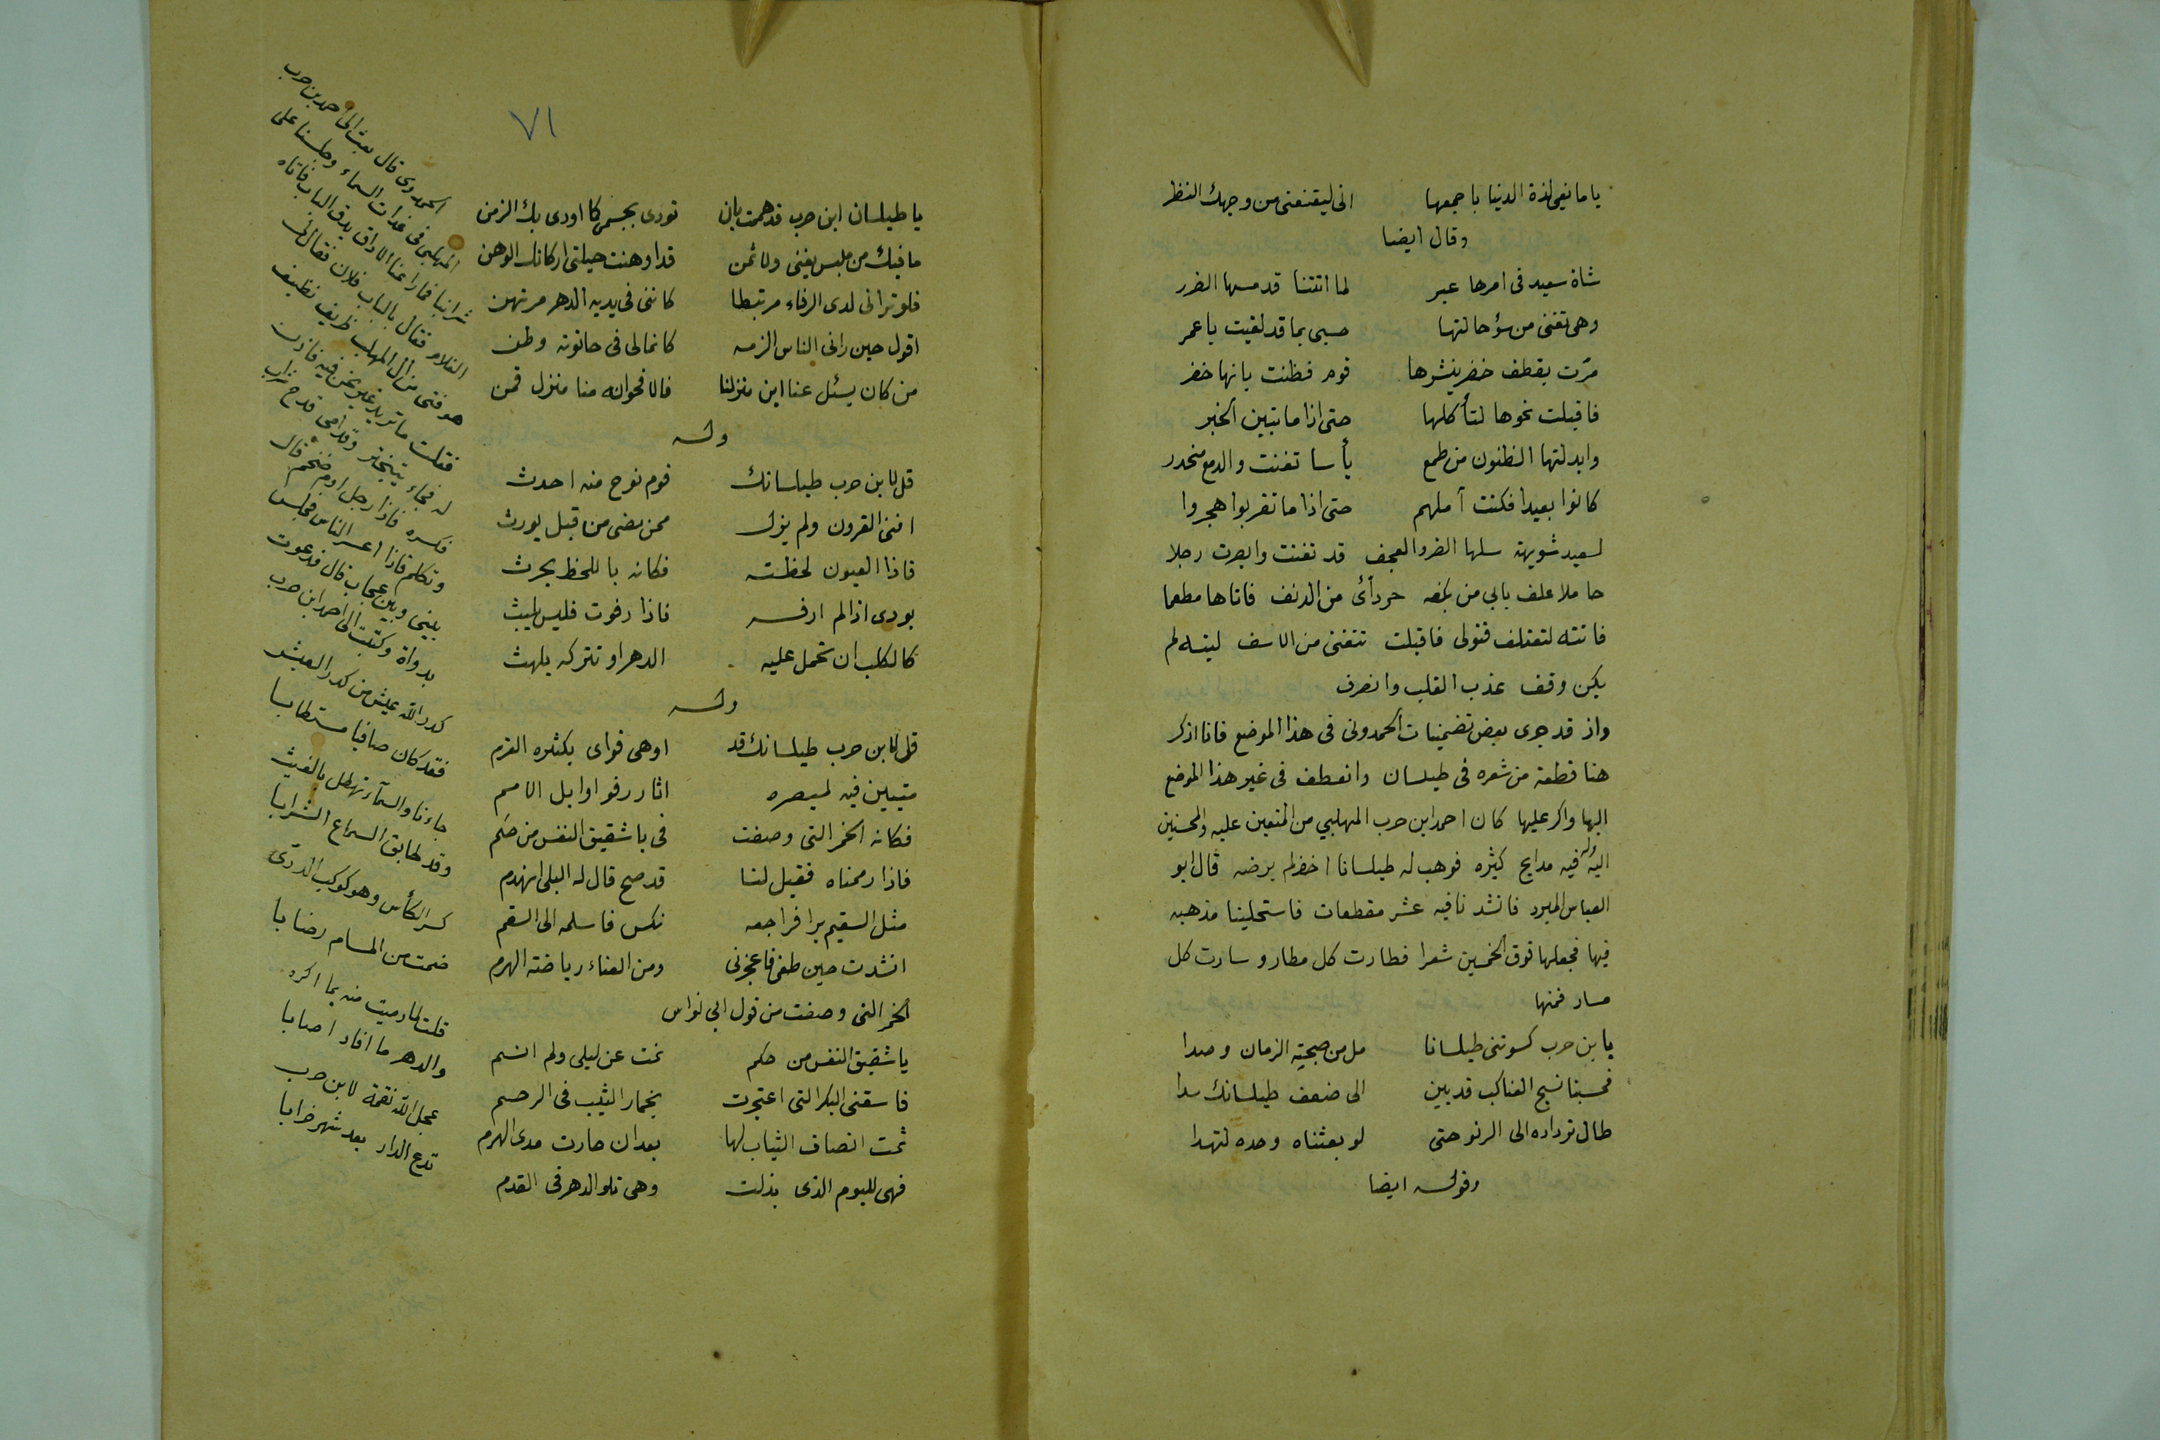 يا مانعي لذة الدنيا باجمعها انى ليقنعنى من وجهك النظر
وقال ايضا
شاة سعيد فى امرها عبر لما اتتنا قد مسها الضرر
وهى تغنى من سؤ حالتها حسبى بما قد لقيت يا عمر
مرّت بقطف خضر ينشرها قوم فظنت بانها خضر
فاقبلت نحوها لتأكلها حتى اذا ما تبين الخبر
وابدلتها الظنون من طمع يأسا تغنت والدمع منحدر
كانوا بعيدا فكنت آملهم حتى اذا ما تقربوا هجروا
لسعيد شويهة سلها الضر والعجف قد تغنت وابصرت رجلا
حاملا علف بابى من بكفه خردآئى من الدنف فاتاها مطعما
فاتته لتعتلف فتولى فاقبلت تتغنى من الاسف ليته لم
يكن وقف عذب القلب وانصرف
واذ قد جرى بعض تضمينات الحمدونى فى هذا الموضع فانا اذكر
هنا قطعة من شعره فى طيلسان وانعطف فى غير هذا الموضع
اليها واكر عليها كان احمد ابن حرب المهلبي من المنعمين عليه والمحسنين
اليه وله فيه مدايح كثيره فوهب له طيلسانا اخضر لم يرضه قال ابو
العباس المبرد فانشدنا فيه عشر مقطعات فاستحلينا مذهبه
فيها فجعلها فوق الخمسين شعرا فطارت كل مطار وسارت كل
مسار فمنها
يا بن حرب كسوتنى طيلسانا مل من صحبته الزمان وصدا
فحسبنا نسج العناكب قد بين الى ضعف طيلسانك سدا
طال ترداده الى الرفو حتى لو بعثناه وحده لتهدا
وقوله ايضا
٧١
يا طيلسان ابن حرب قد هممت بان تودى بجسمى كما اودى بك الزمن
ما فيك من ملبس يغنى ولا ثمن قد اوهنت حيلتى اركانك الوهن
فلو ترانى لدى الرفاء مرتبطا كاننى فى يديه الدهر مرتهن
اقول حين رانى الناس الزمه كانما لى فى حانوته وطن
من كان يسئل عنا اين منزلنا فالاقحوانه منا منزل قمن
وله
قل لابن حرب طيلسانك قوم نوح منه احدث
افنى القرون ولم يزل ممن مضى من قبل يورث
فاذا العيون لحظنه فكانه باللحظ يحرث
يودى اذا لم ارفه فاذا رفوت فليس يلبث
كالكلب ان تحمل عليه الدهر او تتركه يلهث
وله
قل لابن حرب طيلسانك قد اوهى قواى بكثره الغرم
متبين فيه لمبصره اثار رفو اوايل الامم
فكانه الخمر التى وصفت فى يا شقيق النفس من حكم
فاذا رممناه فقيل لنا قد صح قال له البلى انهدم
مثل السقيم برا فراجعه نكس فاسلمه الى السقم
انشدت حين طغى فاعجزنى ومن العناء رياضة الهرم
الخمر التى وصفت من قول ابى نواس
يا شقيق النفس من حكم نمت عن ليلى ولم انم
فاسقنى البكر التى اعتجرت بخمار الشيب فى الرحم
ثمت انصاف الشباب لها بعد ان جازت مدى الهرم
فهى لليوم الذى بذلت وهى تلو الدهر فى القدم
الحمدوى قال بعث الى احمد بن حرب
المهلبى فى غداة السماء وجلسنا على
شرابنا فما راعنا الا داق يدق الباب فاتاه
الغلام فقال بالباب فلان فقال لى
هو فتى من آل المهلب ظريف نظيف
فقلت ما تريد غير نحن فيه فاذن
له فجاء يتبختر وقدامى قدح شراب
فكسره فاذا رجل اوم ضخم قال
وتكلم فاذا اعسر الناس فجلس
بينى وبين عجاب قال فدعوت
بدواة وكتبت الى احمد ابن حرب
كدر الله عيش من كدر العيش
فقد كان صافيا مستطابا
جاءنا والسمآء تهطل بالغيث
وقد طابق السماع الشرابا
كسر الكأس وهو كوكب الدرّى
ضمت من المدام رضابا
قلت لما رميت منه بما اكره
والدهر ما افاد اصابا
عجل الله نقمة لابن حرب
تدع الدار بعد شهر خرابا